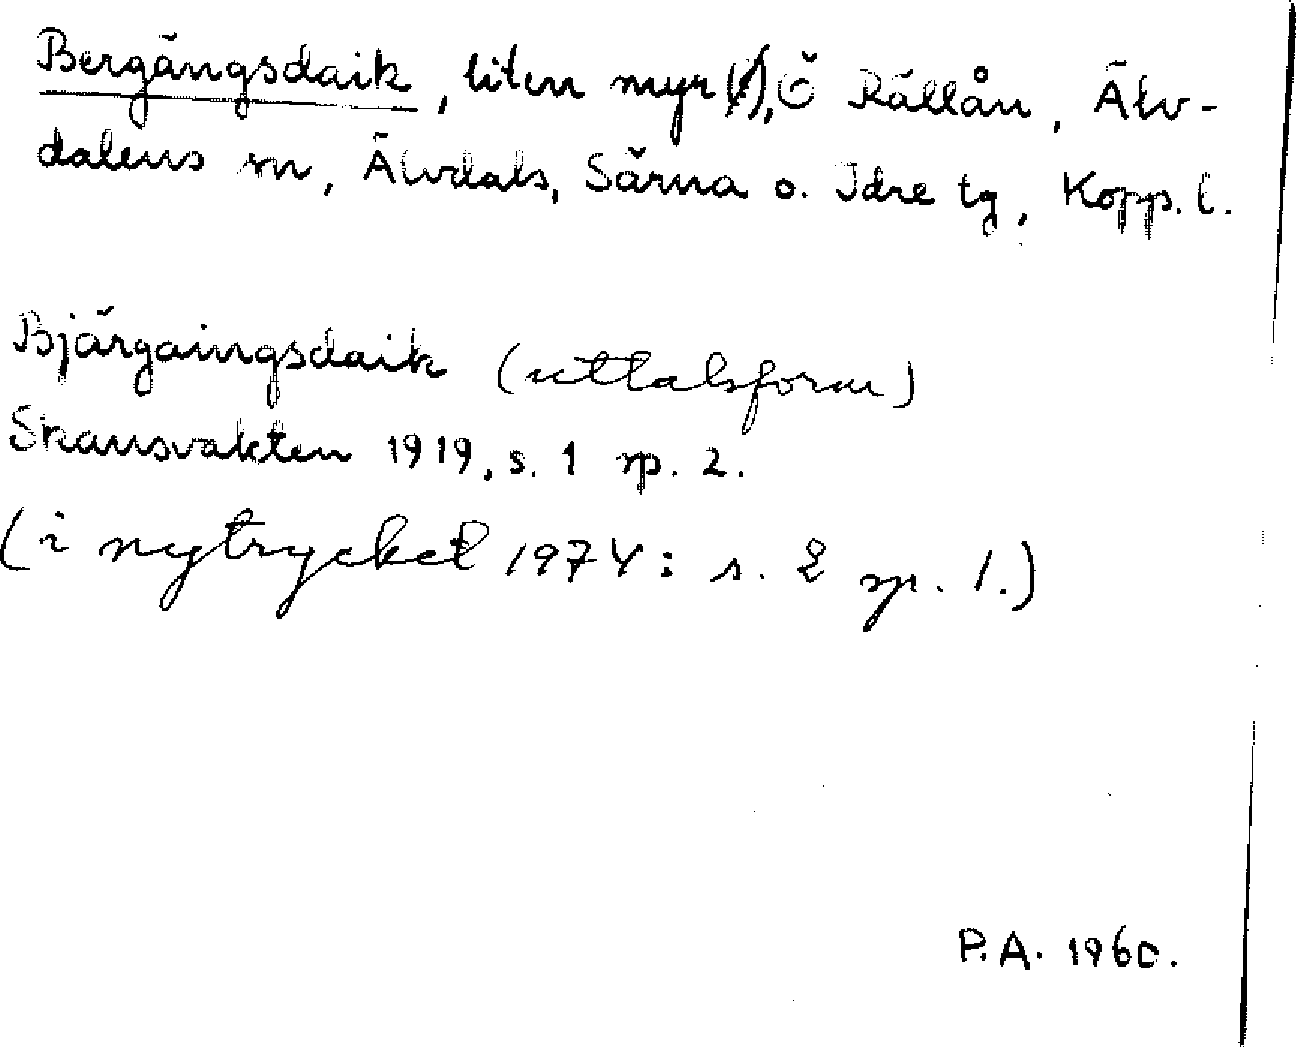 Bergängsdaik, liten myr, Ö Rällån, Älv-
dalens sn, Älvdals, Särna o. Idre tg, Kopp. l.
Bjärgaingsdaik (uttalsform)
Skansvakten 1919, s. 1 sp. 2.
(i nytrycket 1974: s. 2 sp. 1.)
P.A. 1960.